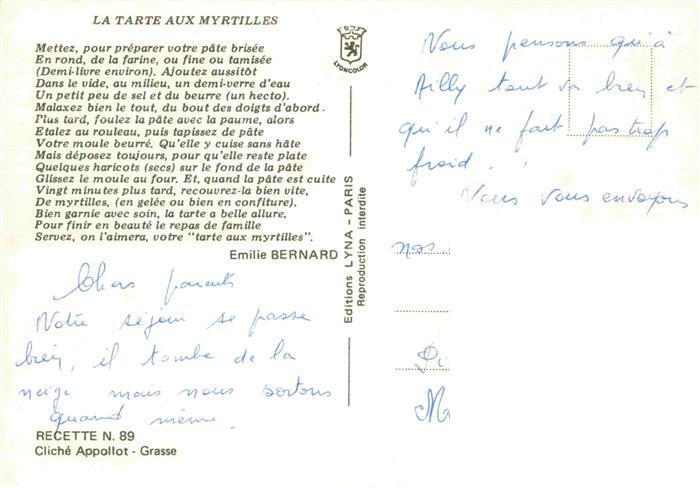 LA TARTE AUX MYRTILLES
Mettez, pour préparer votre pâte brisée
En rond, de la farine, ou fine ou tamisée
(Demi-livre environ). Ajoutez aussitôt
Dans le vide, au milieu, un demi-verre d'eau
Un petit peu de sel et du beurre (un hecto).
Malaxez bien le tout, du bout des doigts d'abord.
Plus tard, foulez la pâte avec la paume, alors
Etalez au rouleau, puis tapissez de pâte
Votre moule beurré. Qu'elle y cuise sans hâte
Mais déposez toujours, pour qu'elle reste plate
Quelques haricots (secs) sur le fond de la pâte
Glissez le moule au four. Et, quand la pâte est cuite
Vingt minutes plus tard, recouvrez-la bien vite,
De myrtilles, (en gelée ou bien en confiture).
Bien garnie avec soin, la tarte a belle allure.
Pour finir en beauté le repas de famille
Servez, on l'aimera, votre "tarte aux myrtilles".
Emilie BERNARD
Chers parents
Notre séjour se passe
bien, il tombe de la
neige mais nous sortons
quand même.
RECETTE N. 89
Cliché Appollot - Grasse
LYONCOLOR
Editions LYNA - PARIS
Reproduction interdite
Nous pensons qu'à
Ailly tout va bien et
qu'il ne fait pas trop
froid.
Nous vous envoyons
nos